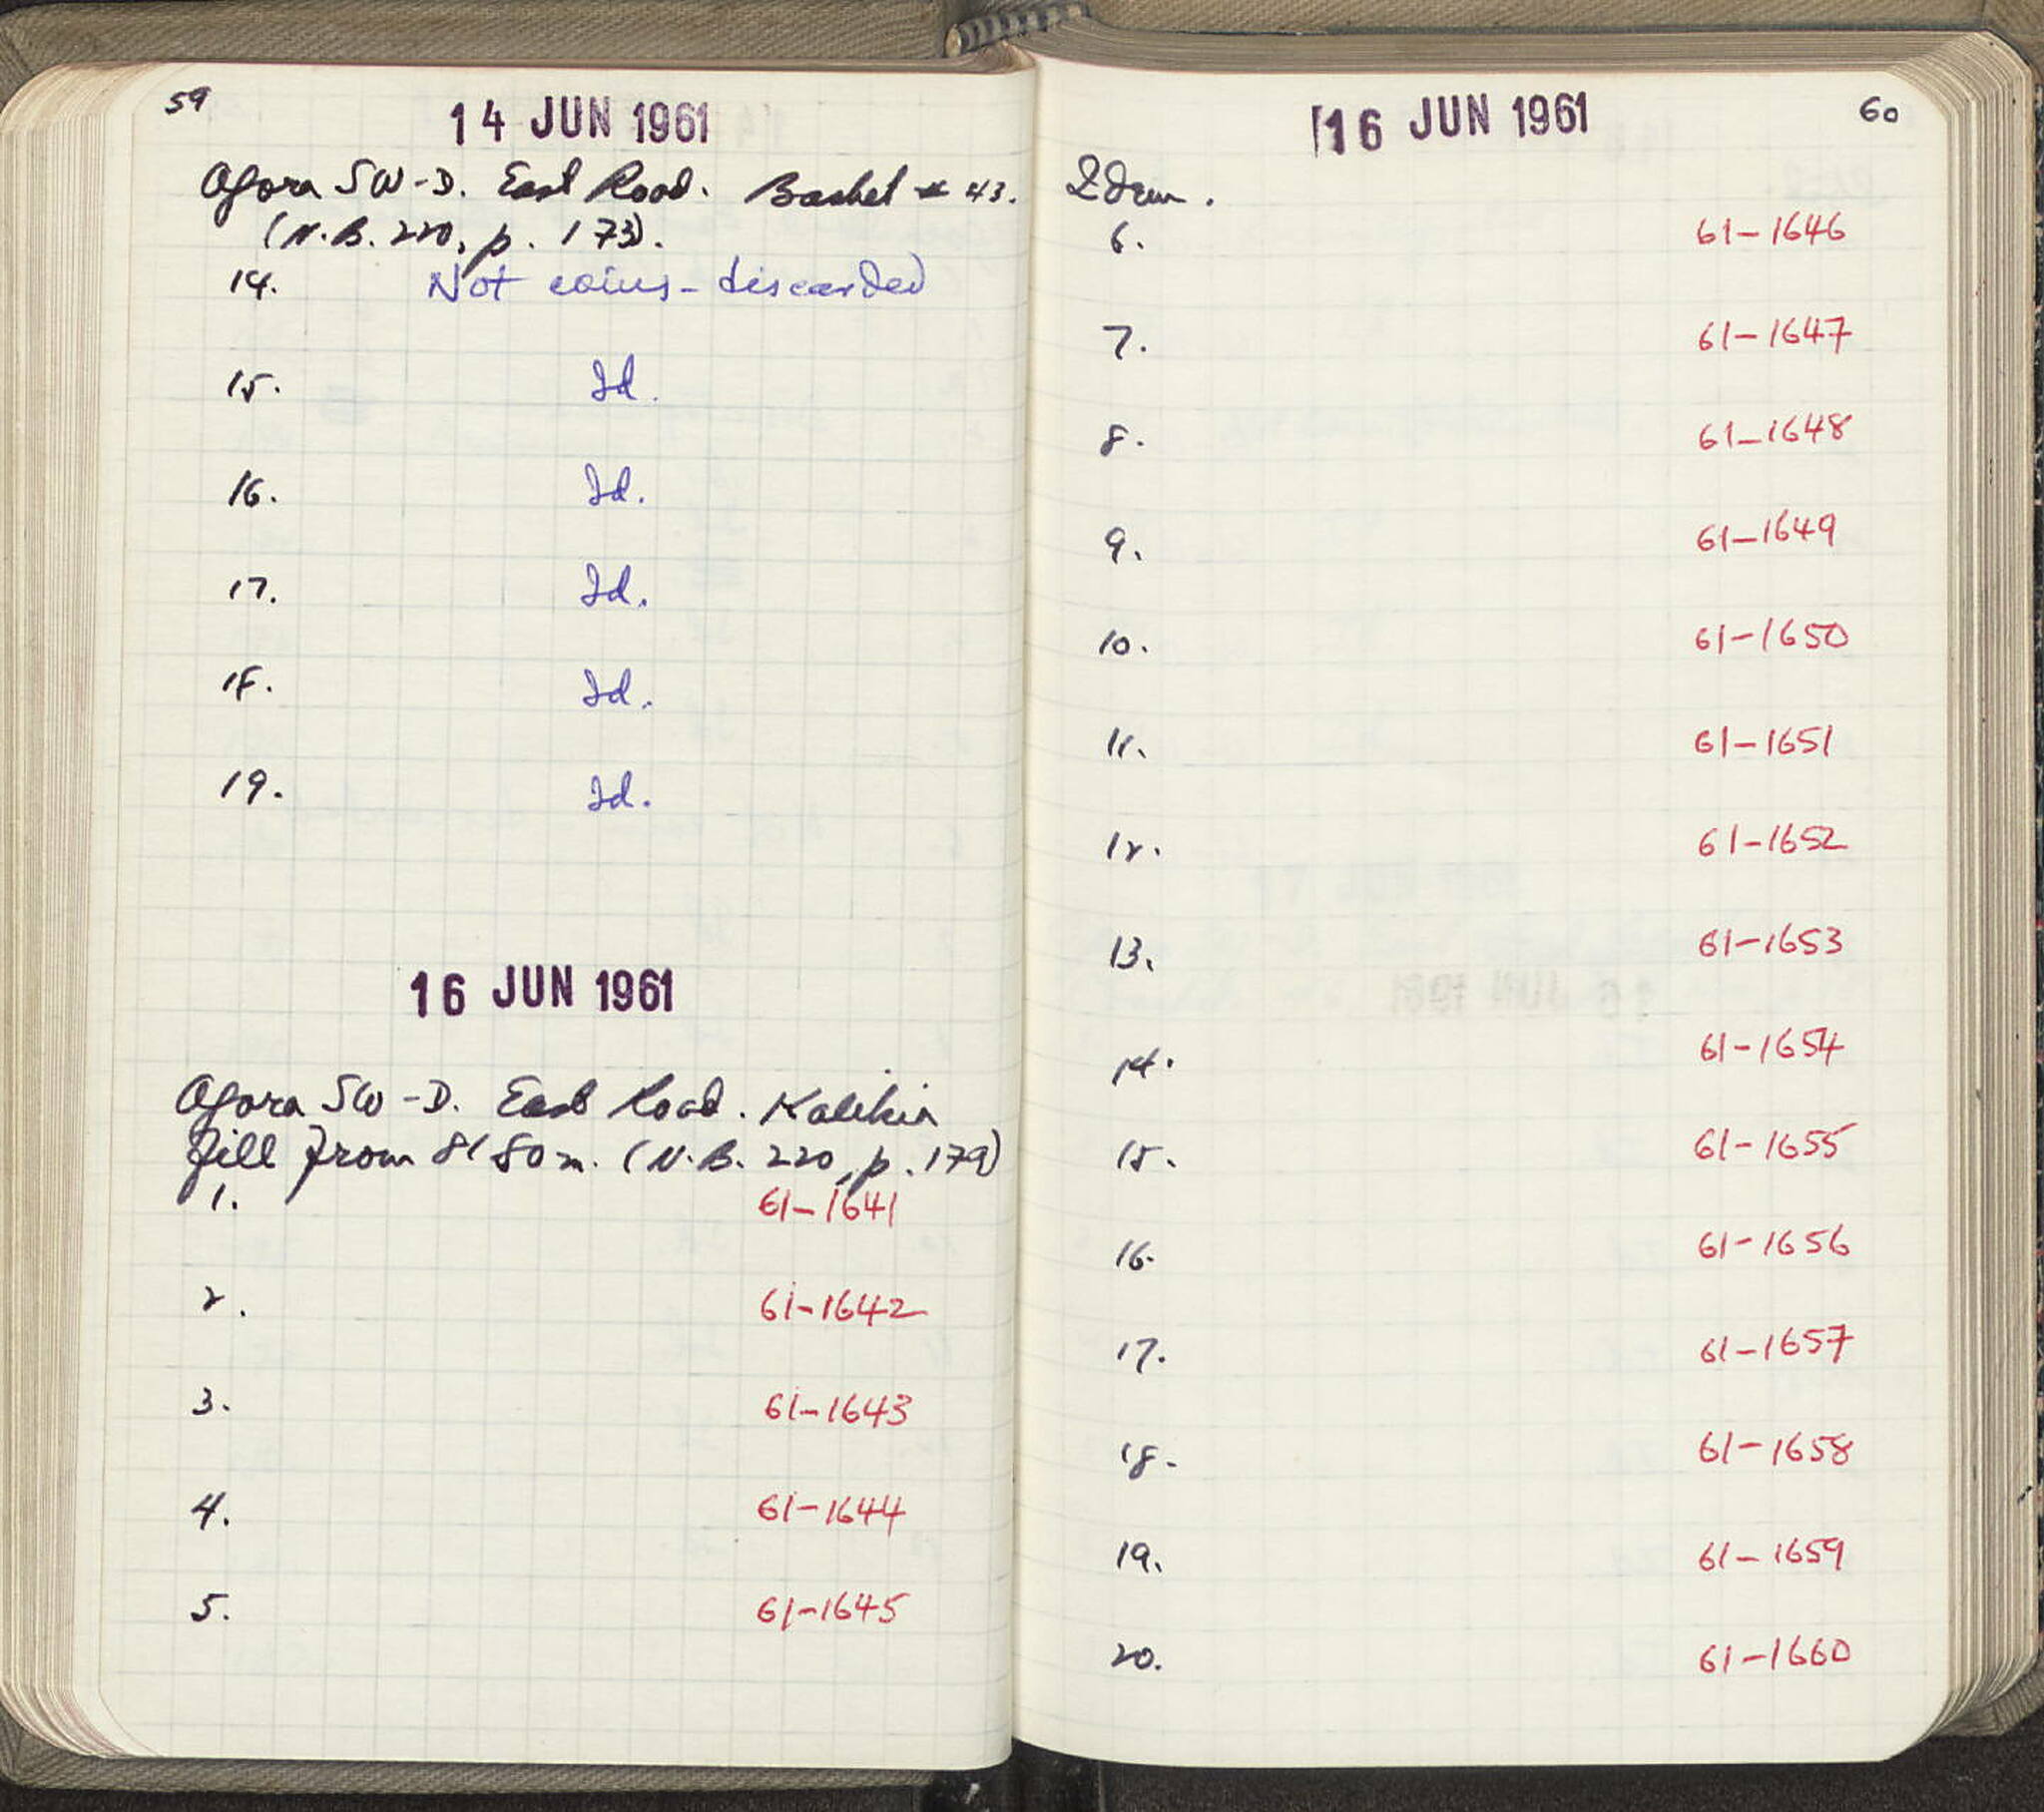 59
14 JUN 1961
Agora SW-D. East Road. Basket # 43.
(N.B. 220, p. 173).
14. Not coins - discarded
15. Id.
16. Id.
17. Id.
18. Id.
19. Id.
16 JUN 1961
Agora SW-D. East Road.
fill from 81.80 m. (N.B. 220, p. 179)
1. 61-1641
2. 61-1642
3. 61-1643
4. 61-1644
5. 61-1645
16 JUN 1961
60
Idem.
6. 61-1646
7. 61-1647
8. 61-1648
9. 61-1649
10. 61-1650
11. 61-1651
12. 61-1652
13. 61-1653
14. 61-1654
15. 61-1655
16. 61-1656
17. 61-1657
18. 61-1658
19. 61-1659
20. 61-1660